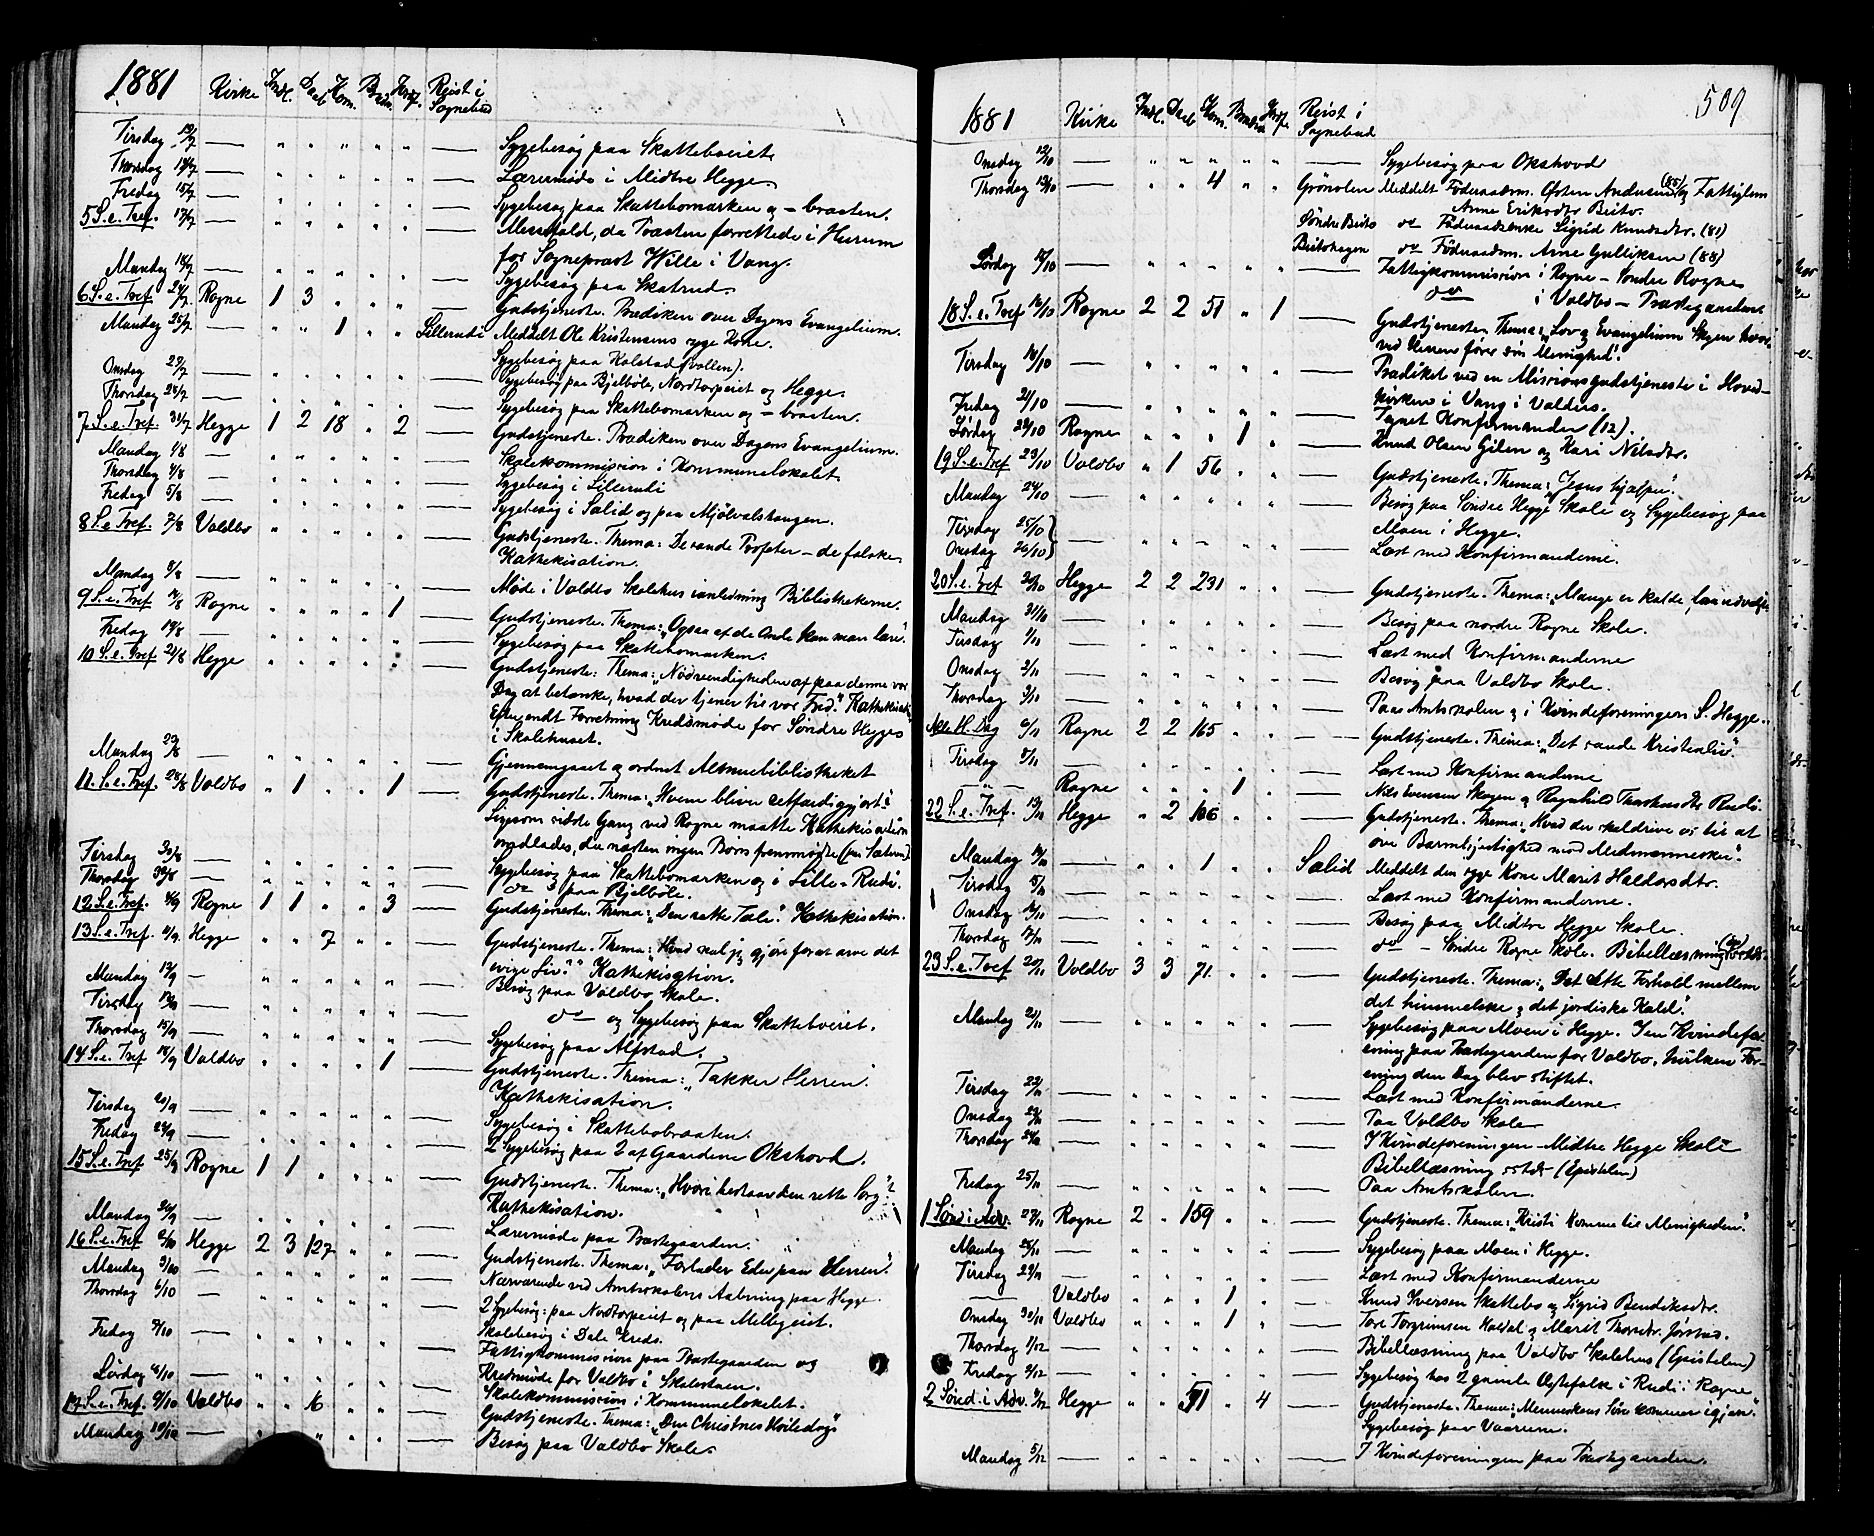 1881 Kirke Indl. Daab Kom. Brudv. Introd. Reist i Sognebud
Tirsdag 12/7 — " " " " " — Sygebesøg paa Skattebøeiet
Thorsdag 14/7 — " " " " " — Lærermøde i Midtre Hegge.
Fredag 15/7 — " " " " " — Sygebesøg paa Skattebomarken og – braaten.
5 S. e. Tref. 17/7 — " " " " " — Messefald, da Præsten forrettede i Hurum
for Sogneprest Wille i Vang.
Mandag 18/7 — " " " " " — Sygebesøg paa Skatrud.
6 S. e. Tref. 24/7 Rogne 1 3 " " " — Gudstjeneste. Prædiken over Dagens Evangelium.
Mandag 25/7 — " " 1 " " Lillerudi Meddelt Ole Kristensens syge Kone.
Sygebesøg paa Kolstad (vollen).
Onsdag 27/7 — " " " " " — Sygebesøg paa Bjelbøle, Nordtorpeiet og Hegge.
Thorsdag 28/7 — " " " " " — Sygebesøg paa Skattebomarken og – braaten.
7 S. e. Tref. 31/7 Hegge 1 2 18 " 2 — Gudstjeneste. Prædiken over Dagens Evangelium.
Mandag 1/8 — " " " " " — Skolekommission i Kommunelokalet.
Thorsdag 4/8 — " " " " " — Sygebesøg i Lillerudi
Fredag 5/8 — " " " " " — Sygebesøg i Salid og paa Mjølvalshaugen.
8 S. e. Tref. 7/8 Voldbo " " " " " — Gudstjeneste. Thema: De sande Profeter – de falske.
Kathekisation.
Mandag 8/8 — " " " " " — Møde i Voldbo Skolehus i anledning Bibliothekerne.
9 S. e. Tref. 14/8 Rogne " " " " 1 — Gudstjeneste. Thema: "Ogsaa af de Onde kan man lære".
Fredag 19/8 — " " " " " — Sygebesøg paa Skattebomarken.
10 S. e. Tref 21/8 Hegge " " " " " — Gudstjeneste: Thema: "Nødvendigheden af paa denne vor
Dag at betænke, hvad der tjener til vor Fred." Kathekisat.
Efter endt Forretning Kredsmøde for Søndre Hegges
i Skolehuset.
Mandag 22/8 — " " " " " — Gjennemgaaet og ordnet Almuebibliotheket
11. S. e. Tref. 28/8 Voldbo " 1 " " 1 — Gudstjeneste. Thema: "Hvem bliver retfærdiggjort?"
Ligesom sidste Gang ved Rogne maatte Kathekisation
undlades, da næsten ingen Børn fremmødte (paa Sætern).
Tirsdag 30/8 — " " " " " — Sygebesøg paa Skattebomarken og i Lille-Rudi.
Thorsdag — " " " " " — do paa Bjelbøle.
12 S. e. Tref. 4/9 Rogne 1 1 " " 3 — Gudstjeneste. Thema: "Den rette Tale". Kathekisation.
13 S. e. Tref. 11/9 Hegge " " 7 " " — Gudstjeneste. Thema: "Hvad skal jeg gjøre for at arve det
evige Liv?" Kathekisation.
Mandag 12/9 — " " " " " — Besøg paa Voldbo Skole.
Tirsdag 13/9 — " " " " " — do og Sygebesøg paa Skattebøeiet.
Thorsdag 15/9 — " " " " " — Sygebesøg paa Alfstad.
14 S. e. Tref 18/9 Voldbo " " " " 1 — Gudstjeneste. Thema: "Takker Herren".
Kathekisation.
Tirsdag 20/9 — " " " " " — Sygebesøg i Skattebobraaten.
Fredag 23/9 — " " " " " — 2 Sygebesøg paa 2 af Gaardene Okshovd.
15 S. e. Tref 25/9 Rogne 1 1 " " " — Gudstjeneste. Thema: "Hvori bestaar den rette Sorg"?
Kathekisation.
Mandag 26/9 — " " " " " — Lærermøde paa Præstegaarden.
16 S. e. Tref 2/10 Hegge 2 3 127 " " — Gudstjeneste. Thema: "Forlader Eder paa Herren".
Mandag 3/10 — " " " " " — Nærværende ved Amtsskolens Aabning paa Hegge.
Thorsdag 6/10 — " " " " " — 2 Sygebesøg: paa Nordtorpeiet og paa Melbyeiet.
Skolebesøg i Dale Kreds.
Fredag 7/10 — " " " " " — Fattigkommission paa Præstegaarden og
Kredsmøde for Voldbo i Skolestuen.
Lørdag 8/10 — " " " " " — Skolekommission i Kommunelokalet.
17 S. e. Tref. 9/10 Voldbo " " 6 " " — Gudstjeneste. Thema: "Den Christnes Hviledag"
Mandag 10/10 — " " " " — Besøg paa Voldbo Skole.
509
1881 Kirke Indl. Daab Kom. Brudv. Introd. Reist i Sognebud
Onsdag 12/10 — " " " " " — Sygebesøg paa Okshovd
Thorsdag 13/10 — " " 4 " " Grønolen Meddelt Føderaadsm. Østen Andersen (85) og Fattiglem
Anne Eriksdtr Beito.
Søndre Beito do Føderaadsenke Sigrid Knudsdtr. (81)
Beitohagen do Føderaadsm. Arne Gulliksen (88)
Lørdag 15/10 — " " " " " — Fattigkommission i Rogne – Søndre Rogne
do i Voldbo – Præstegaarden
18 S. e. Tref 16/10 Rogne 2 2 51 " 1 — Gudstjeneste. Thema: "Lov og Evangelium Skyen hvor
ved Herren fører sin Menighed".
Tirsdag 18/10 — " " " " " — Prædiket ved en Missionsgudstjeneste i Hoved-
kirken i Vang i Valders.
Fredag 21/10 — " " " " " — Tegnet Konfirmander (12).
Lørdag 22/10 Rogne " " " 1 " — Knud Olsen Gilen og Kari Nilsdtr.
19 S. e. Tref 23/10 Voldbo " 1 56 " " — Gudstjeneste. Thema: "Jesus hjælper".
Mandag 24/10 — " " " " " — Besøg paa Søndre Hegge Skole og Sygebesøg paa
Moen i Hegge.
Tirsdag 25/10
Onsdag 26/10 — " " " " " — Læst med Konfirmanderne.
20 S. e. Tref 30/10 Hegge 2 2 231 " " — Gudstjeneste. Thema: "Mange er kalde, faa udvalgte
Mandag 31/10 — " " " " " — Besøg paa nordre Rogne Skole.
Tirsdag 1/11 — " " " " " — Læst med Konfirmanderne
Onsdag 2/11 — " " " " " — Besøg paa Voldbo Skole.
Thorsdag 3/11 — " " " " " — Paa Amtsskolen og i Kvindeforeningen S. Hegge.
Alle H. Dag 6/11 Rogne 2 2 165 " " — Gudstjeneste. Thema: "Det sande Kristenliv".
Tirsdag 8/11 — " " " " " — Læst med Konfirmanderne
— " — Rogne " " " 1 " — Nils Evensen Skogen og Ragnhild Thorstensdtr Rudi.
22 S. e. Tref. 13/11 Hegge " 2 106 " " — Gudstjeneste. Thema: "Hvad der skal drive os til at
øve Barmhjertighed mod Medmennesker".
Mandag 14/11 — " " 1 " " Salid Meddelt den syge Kone Marit Haldorsdtr.
Tirsdag 15/11 — " " " " " — Læst med Konfirmanderne.
Onsdag 16/11 — " " " " " — Besøg paa Midtre Hegge Skole.
Thorsdag 17/11 — " " " " " — do – Søndre Rogne Skole. Bibellæsning
23 S. e. Tref 20/11 Voldbo 3 3 71. " " — Gudstjeneste. Thema: "Det rette Forhold mellem
det himmelske og det jordiske Kald".
Mandag 21/11 — " " " " " — Sygebesøg paa Moen i Hegge. I en Kvindefor-
ening paa Præstegaarden for Voldbo, hvilken For-
ening den Dag blev stiftet.
Tirsdag 22/11 — " " " " " — Læst med Konfirmanderne.
Onsdag 23/11 — " " " " " — Paa Voldbo Skole
Thorsdag 24/11 — " " " " " — I Kvindeforeningen Midtre Hegge Skole
Bibellæsning (Epistelen)
Fredag 25/11 — " " " " " — Paa Amtsskolen.
1 Sønd. i Adv. 27/11 Rogne 2 " 159 " " — Gudstjeneste. Thema: "Kristi Komme til Menigheden".
Mandag 28/11 — " " " " " — Sygebesøg paa Moen i Hegge.
Tirsdag 29/11 — " " " " " — Læst med Konfirmanderne
— Voldbo " " " 1 " — Knud Iversen Skattebo og Sigrid Bendiksdtr.
Onsdag 30/11 Voldbo " " " 1 " — Tore Torgrimsen Haldal og Marit Thorsdtr. Jørstad.
Thorsdag 1/12 — " " " " " — Bibellæsning paa Voldbo Skolehus (Epistelen)
Fredag 2/12 — " " " " " — Sygebesøg hos 2 gamle Ægtefolk i Rudi i Rogne
2 Sønd. i Adv. 4/12 Hegge " " 91 " 4 — Gudstjeneste. Thema: "Menneskens Søn kommer igjen".
Sygebesøg paa Vaarum.
Mandag 5/12 — " " " " " — I Kvindeforeningen paa Præstegaarden.